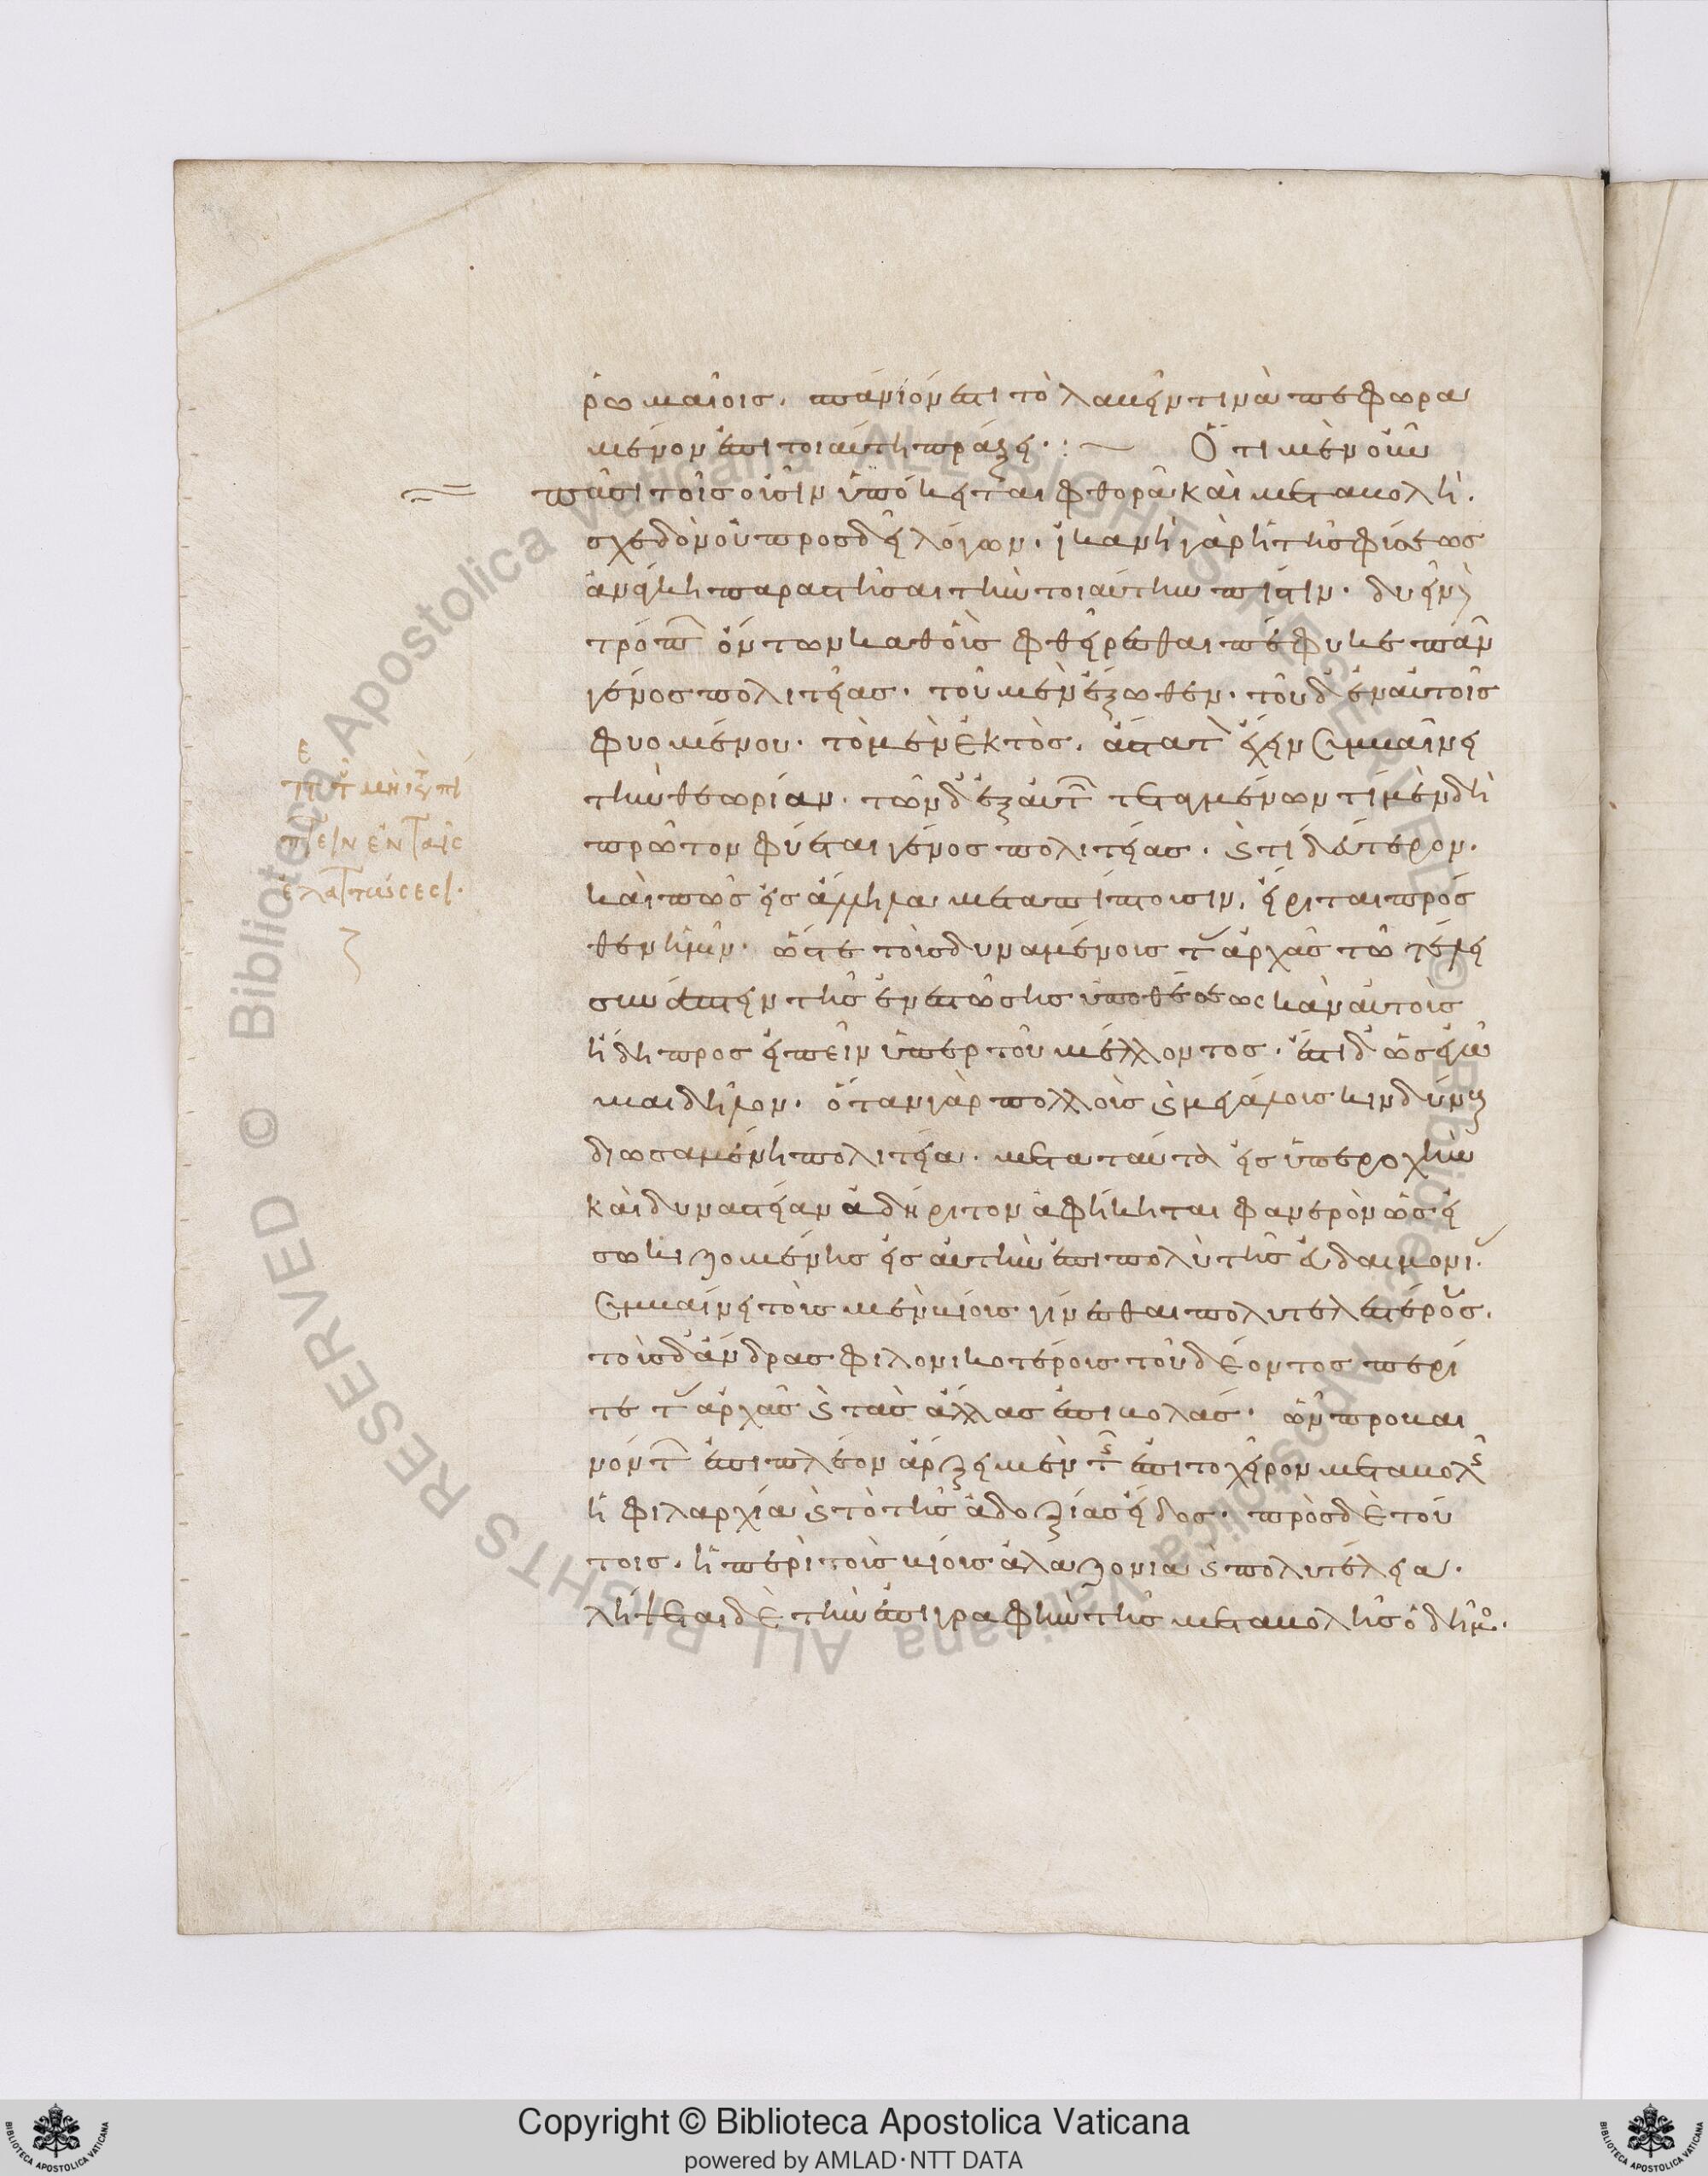 ῥωμαίοις. σπάνιόν ἐστι τὸ λαβεῖν τινὰ πεφωρα
μένον ἐπὶ τοιαύτῃ πράξει· :~ Ὅτι μὲν οὖν
πᾶσι τοῖς οὖσιν ὑπόκειται φθορὰ καὶ μεταβολὴ.
σχεδὸν οὐ προσδεῖ λόγων. ἱκανὴ γὰρ ἡ τῆς φύσεως
ἀνάγκη παραστῆσαι τὴν τοιαύτην πίστιν. δυεῖν δὲ
τρόπων ὄντων καθ' οἷς φθείρεσθαι πέφυκε πᾶν
γένος πολιτείας. τοῦ μὲν ἔξωθεν. τοῦ δ' ἐν αὐτοῖς
φυομένου. τὸ μὲν ἐκτὸς. ἄστατον ἔχειν συμβαίνει
τὴν θεωρίαν. τῶν δ' ἐξ αὐτῶν τεταγμένων τί μὲν δὴ
πρῶτον φύεται γένος πολιτείας. καὶ τί δεύτερον.
καὶ πῶς εἰς ἄλληλα μεταπίπτουσιν, εἴρηται πρόσ
θεν ἡμῖν. ὥστε τοὺς δυναμένοις τὰς ἀρχὰς τῷ τέλει
συνάπτειν τῆς ἐνεστώσης ὑποθέσεως κἂν αὐτοὺς
ἤδη προσειπεῖν ὑπὲρ τοῦ μέλλοντος. ἔστι δ' ὡς ἐγὼ
μαι δῆλον. ὅταν γὰρ πολλοὺς καὶ μεγάλους κινδύνους
διωσαμένη πολιτεία. μετὰ ταῦτα εἰς ὑπεροχὴν
καὶ δυναστείαν ἀδήριτον ἀφίκηται φανερὸν ὡς εἰ
σωκιζομένης εἰς αὐτὴν ἐπὶ πολὺ τῆς εὐδαιμονίας.
συμβαίνει τοὺς μὲν βίους γίνεσθαι πολυτελεστέρους.
τοὺς δ' ἄνδρας φιλονικοτέρους τοῦ δέοντος περί
τε τὰς ἀρχὰς καὶ τὰς ἄλλας ἐπιβολάς. ὧν προβαι
νόντων ἐπὶ πλέον ἄρξει μὲν τῆς ἐπὶ τὸ χεῖρον μεταβολῆς
ἡ φιλαρχία καὶ τὸ τῆς ἀδοξίας εἶδος. πρὸς δὲ τού
τοις. ἡ περὶ τοὺς βίους ἀλαζονία καὶ πολυτέλεια.
λήψεται δὲ τὴν ἐπιγραφὴν τῆς μεταβολῆς ὁ δῆμος.
Copyright © Biblioteca Apostolica Vaticana
powered by AMLAD·NTT DATA